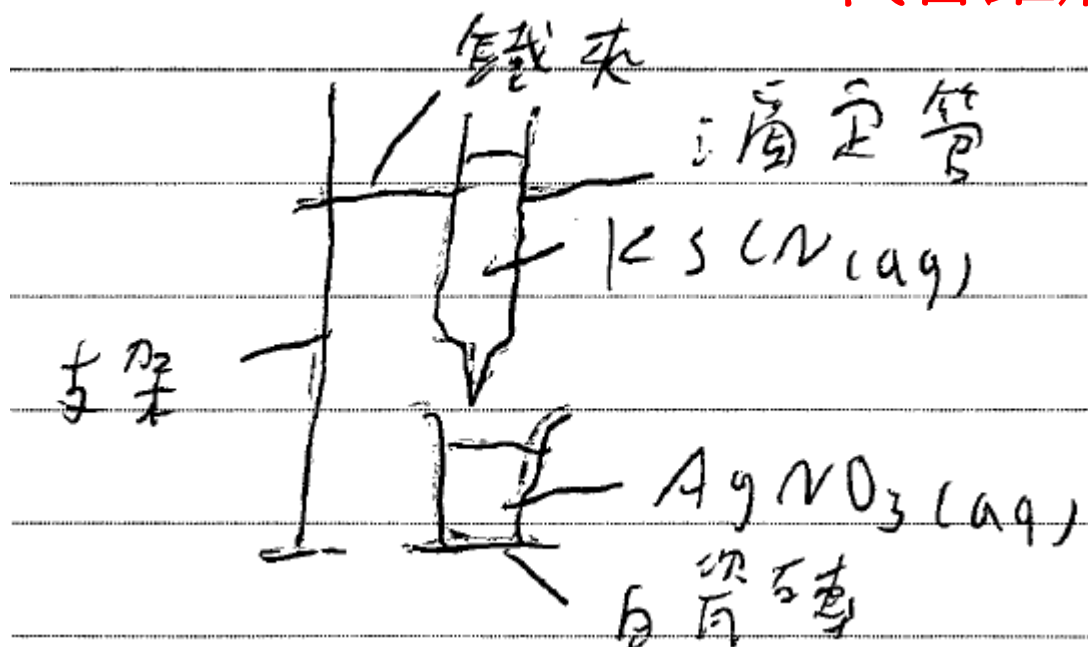 鐵夾
滴定管
KSCN(aq)
支架
AgNO3(aq)
白瓷磚